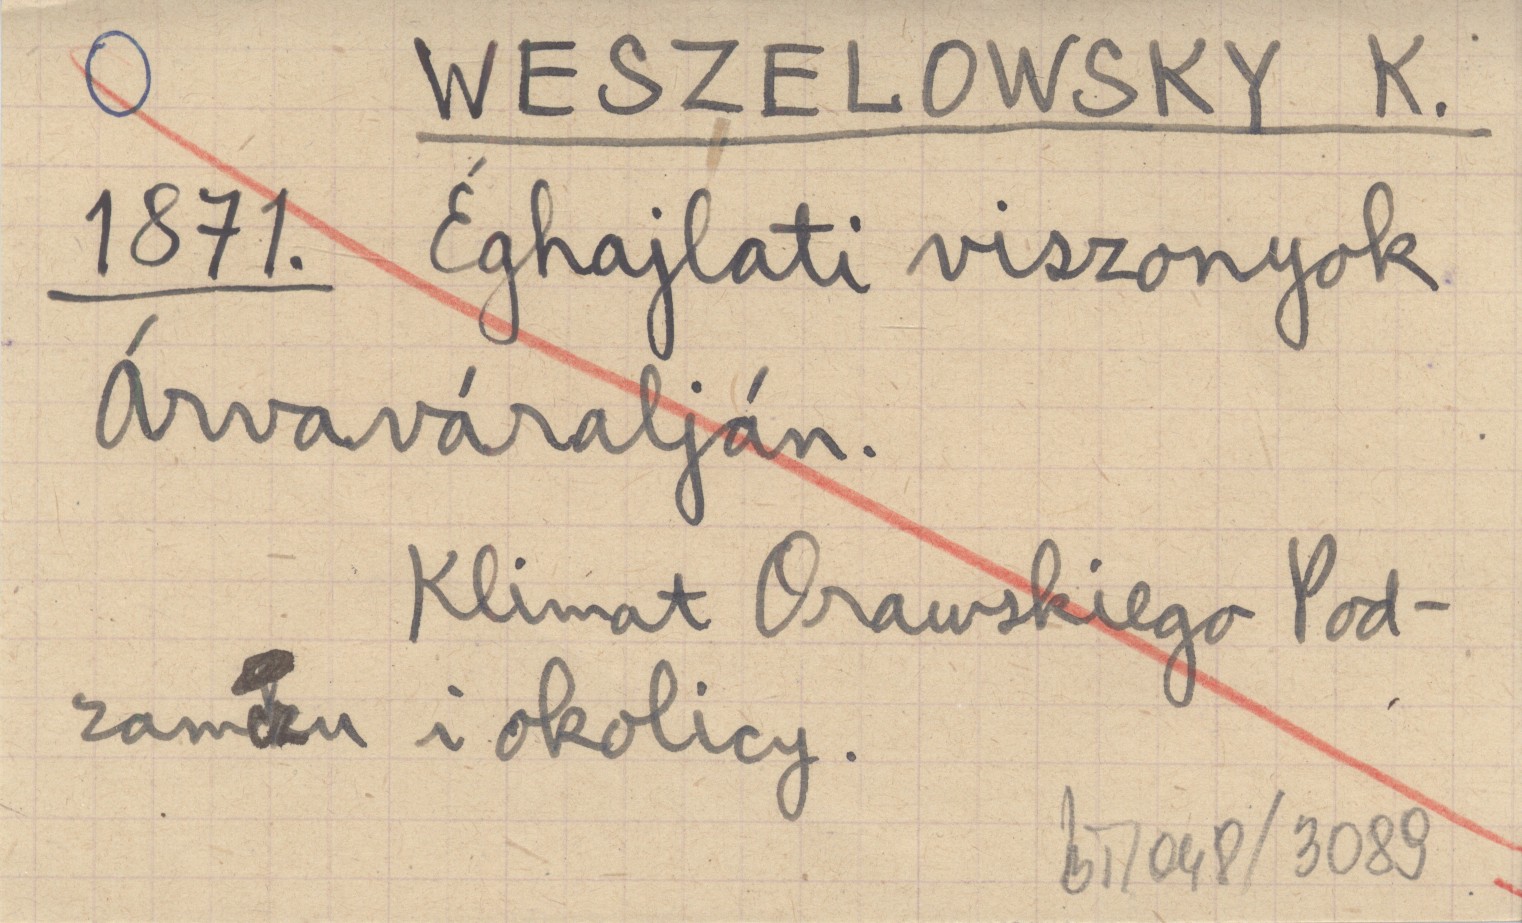 WESZELOWSKY K.
1871. Éghajlati viszonyok
Árvaváralján.
Klimat Orawskiego Pod-
zamczu i okolicy.
/048/3089